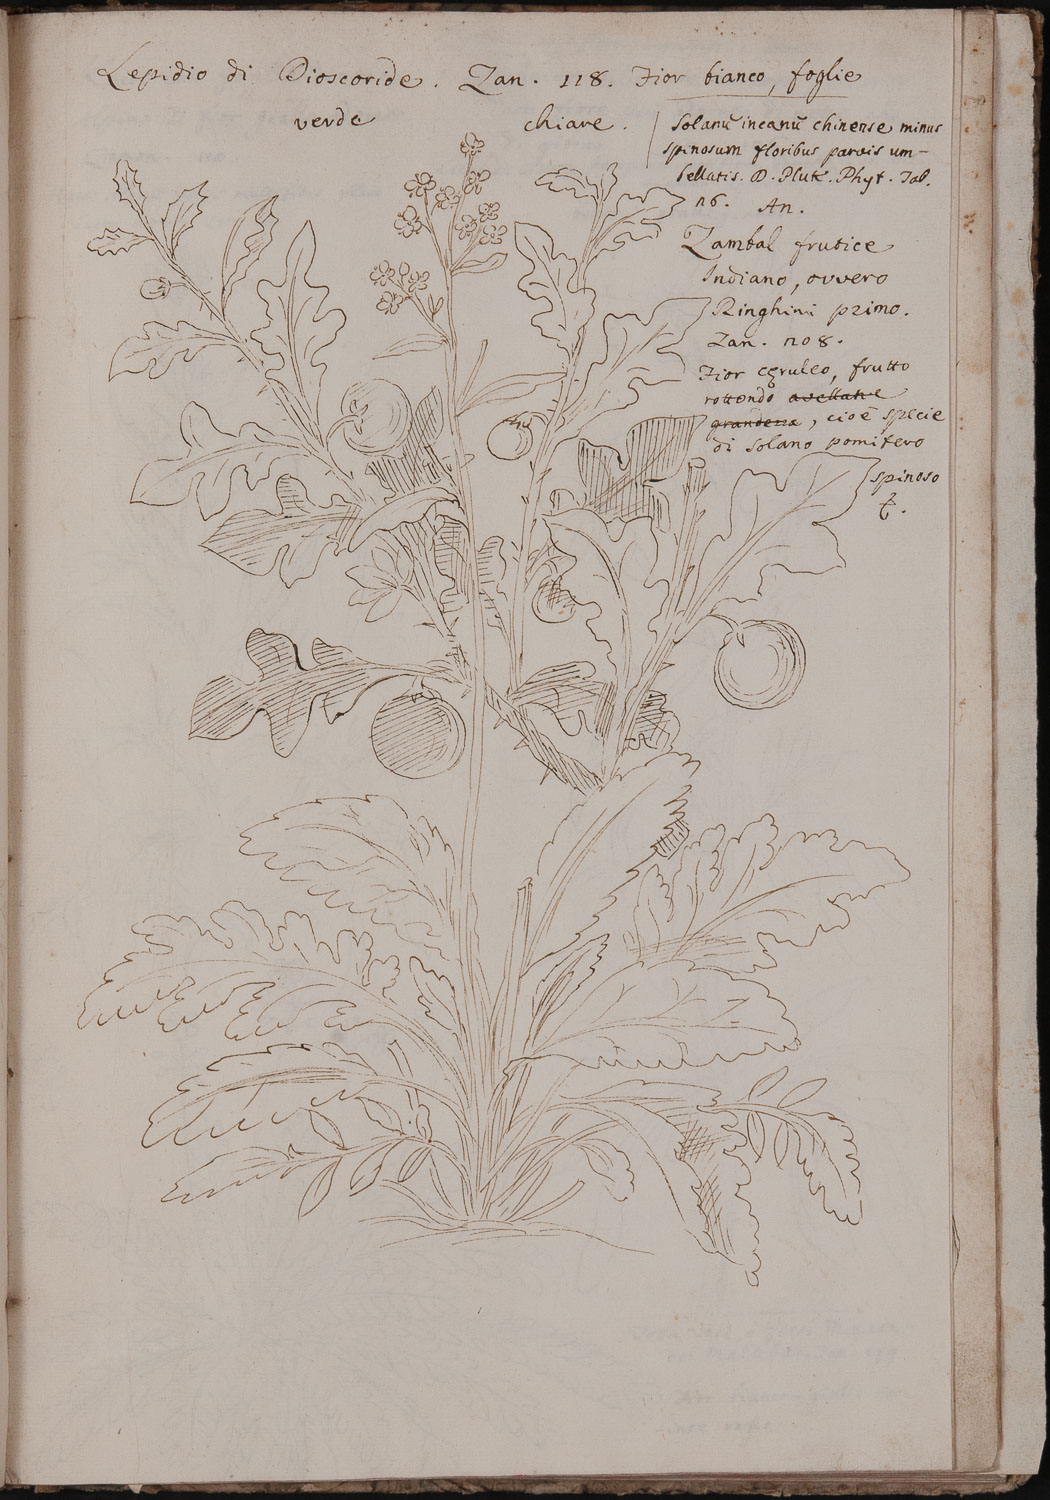 Lepidio di Dioscoride. Zan. 118. Fior bianco, foglie
verde chiare.
Solanũ incanũ chinense minus
spinosum floribus parvis um-
bellatis. D. Pluk. Phyt. Tab.
116. An.
Zambal frutice
Indiano, ovvero
Ringhini primo.
Zan. 208.
Fior cęruleo, frutto
rottondo avellane
grandezza, cioè specie
di Solano pomifero
spinoso